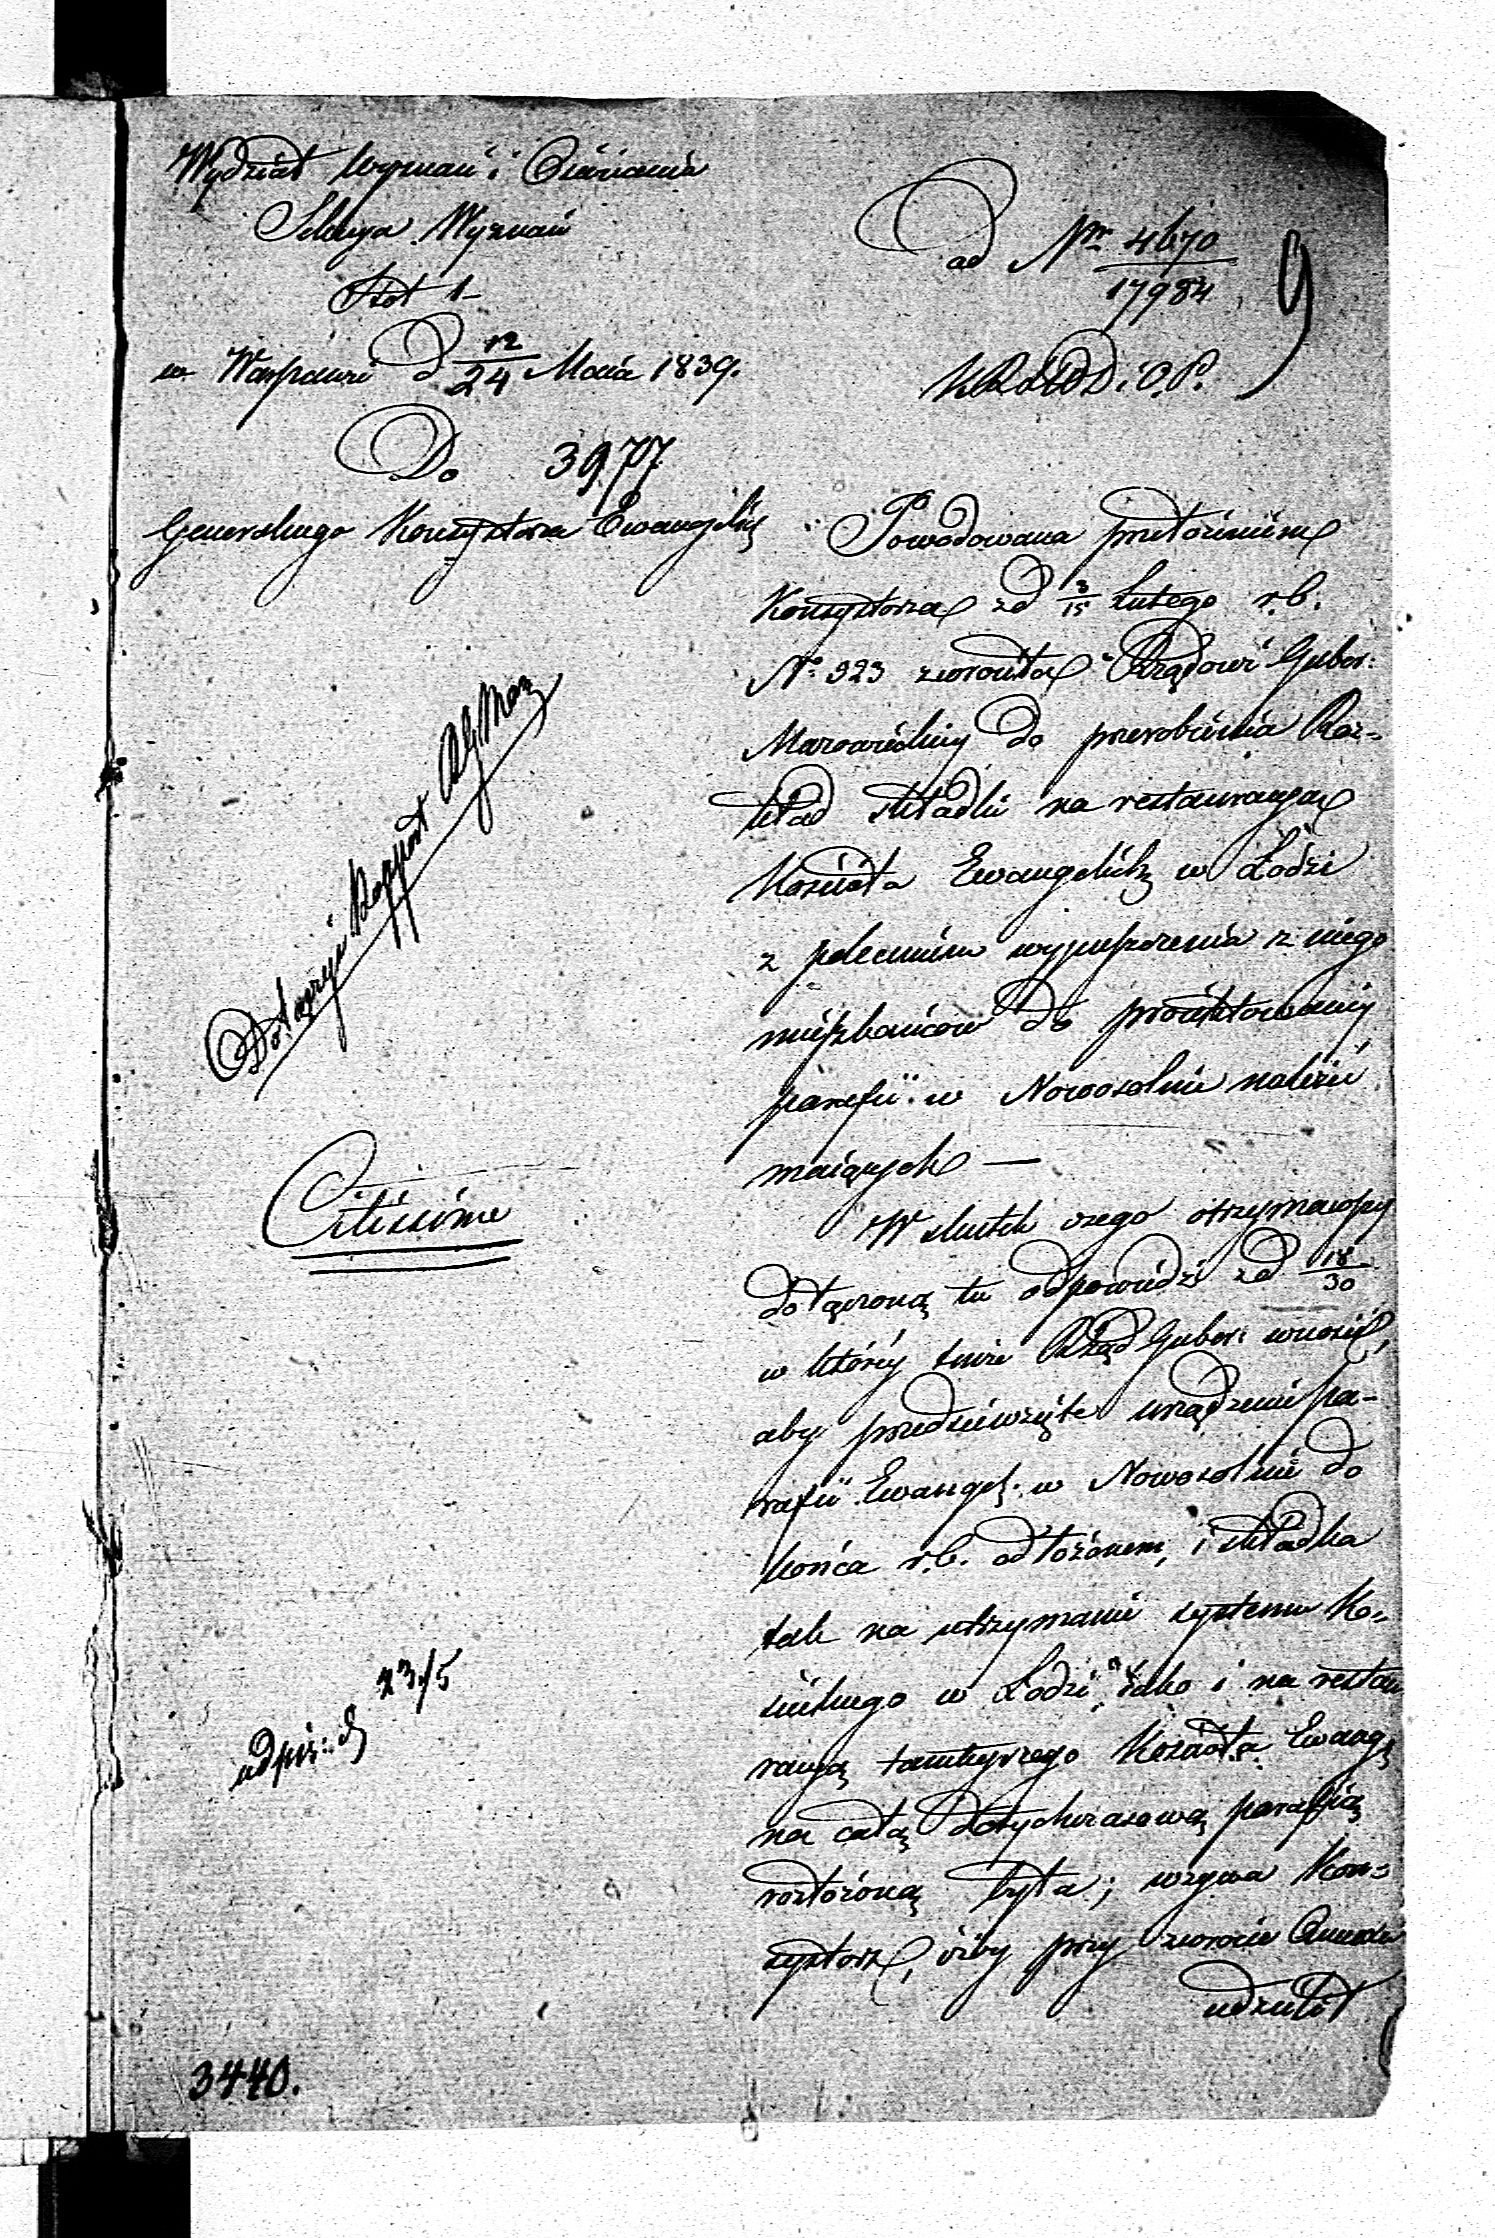 Wydział Wyznań i Oświecenia
Sekcya Wyznań
Stół 1
w Warszawie d 12/24 Maia 1839.
Do 3977
Generalnego Konsystorza Ewangelick
Dołącza Rapport RG Maz
Citissime
23/5
3440.
ad Nr 4670/17984
9
KRSWD i OP.
Powodowana przełożeniem
Konsystorza z d 3/15 Lutego r.b.
No 923 zwrociła Rządowi Guber:
Mazowieckiej do przerobienia Roz-
kład składki na restauracyą
Kościoła Ewangelick w Łodzi
z poleceniem wypuszczenia z niego
mieszkańców do projektowaney
parafii w Nowosolnie należeć
maiących —
W skutek czego otrzymawszy
dołączoną tu odpowiedź z d 18/30
w któréy tenże Rząd Guber: wnosi,
aby przedsięwzięte urządzenie pa-
rafii Ewangel: w Nowosolnie do
końca r.b. odłożonem, i składka
tak na utrzymanie systemu Ko-
scielnego w Łodzi, jako i na restau
racyą tamteyszego Kościoła Ewang
na całą dotychczasową parafią
rozłożoną była; wzywa Kon-
systorz, iżby przy zwrocie Annexów
udzielił